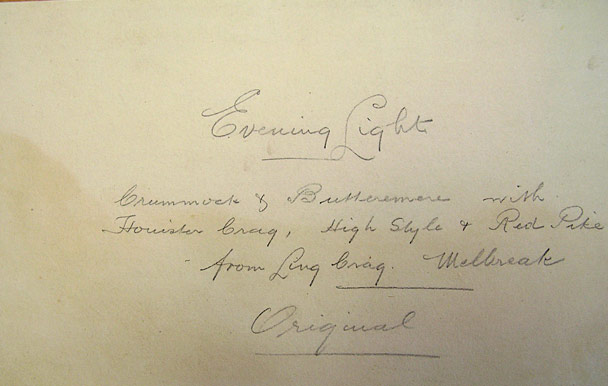 Evening Light
Crummock & Buttermere with
Honister Crag, High Style & Red Pike
from Ling Crag. Mellbreak
Original